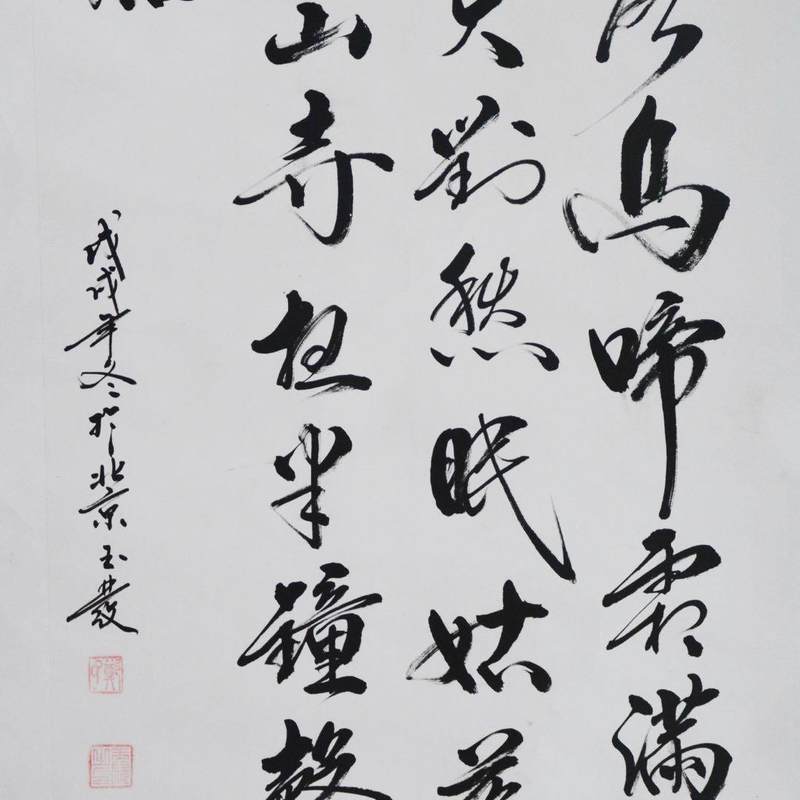 落烏啼霜滿
火對愁眠姑蘇
山寺夜半鐘聲
戊戌年冬於北京玉發